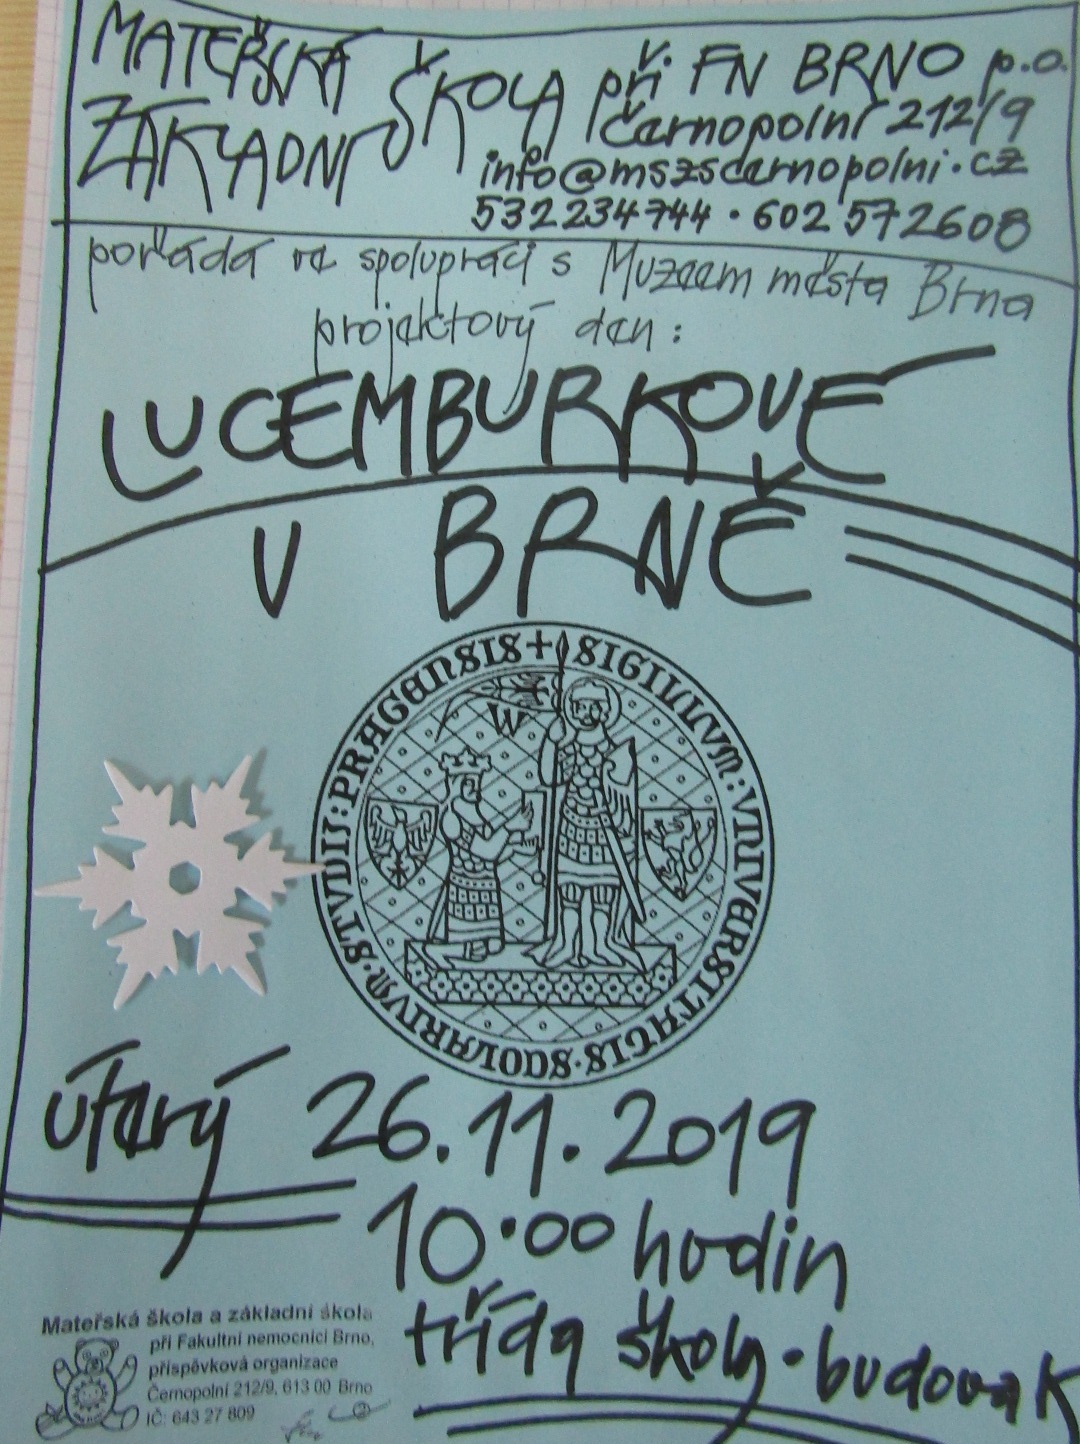 MATEŘSKÁ
ZÁKLADNÍ ŠKOLA při FN BRNO p.o.
Černopolní 212/9
info@mszscernopolni.cz
532234744 · 602 572608
pořádá ve spolupráci s Muzeem města Brna
projektový den:
LUCEMBURKOVÉ
V BRNĚ
+ SIGILLVM : VNIVERSITATIS · SCOLARIVM · STVDII : PRAGENSIS
W
úterý 26.11.2019
10·00 hodin
třída školy · budova K
Mateřská škola a základní škola
při Fakultní nemocnici Brno,
příspěvková organizace
Černopolní 212/9, 613 00 Brno
IČ: 643 27 809